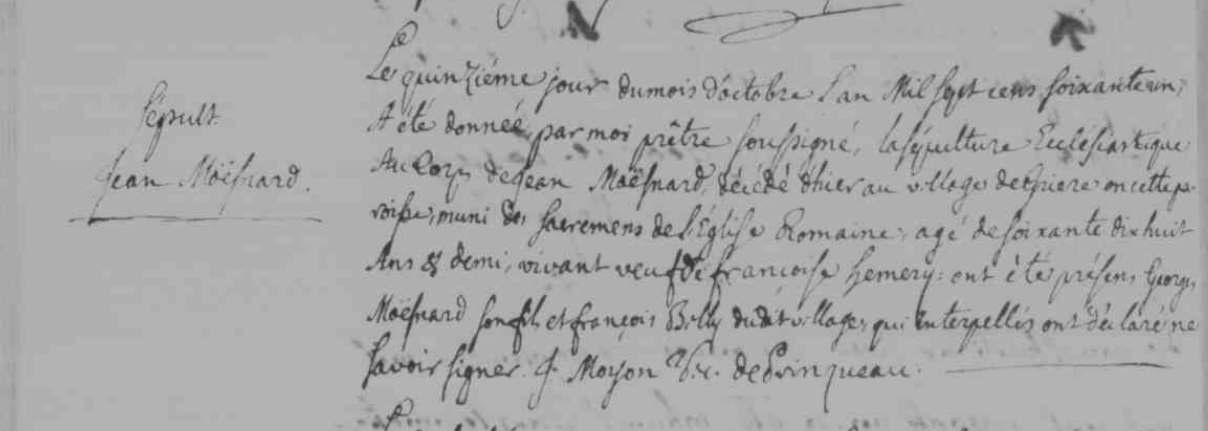 Sépult.
Jean Moësnard.
Le quinziéme jour du mois d'octobre l'an Mil sept cens soixante un,
A été donnée, par moi prêtre soussigné, la sépulture Ecclésiastique
Au Corps de Jean Moësnard, décédé d'hier au village de en cette pa-
roisse, muni des sacremens de l'Eglise Romaine, agé de soixante dix huit
Ans & demi, vivant veuf de françoise hemery: ont été présens Georges
Moësnard son fils et françois Belly dudit village, qui interpellés ont déclaré ne
savoir signer. J. Moyson V.re. de Prinqueau.